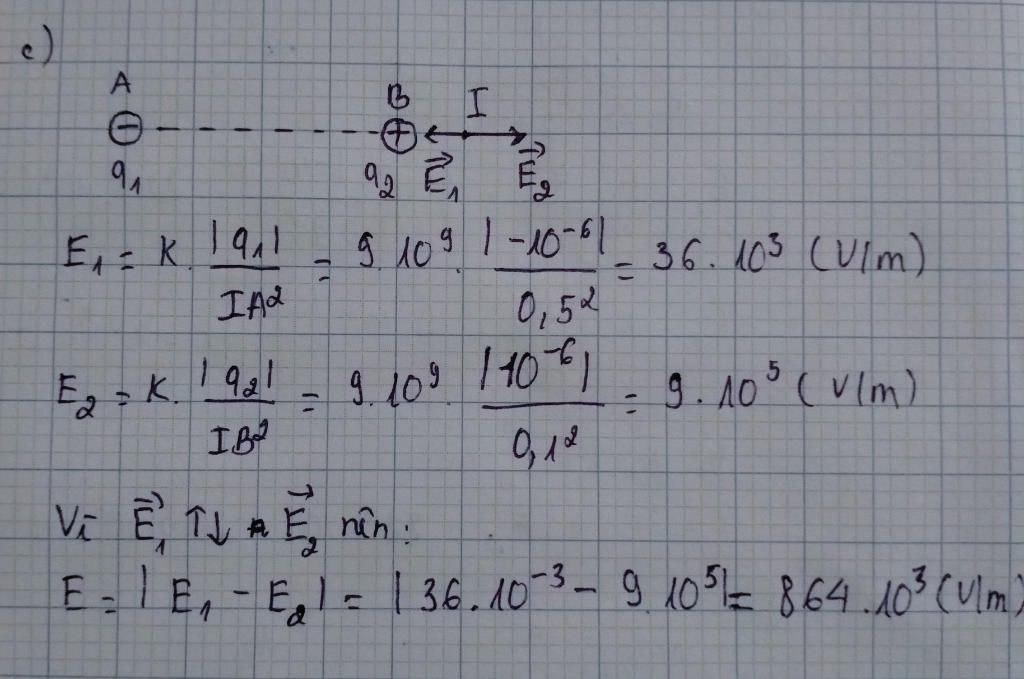 c)
A B I
⊖ ⊕
q₁ q₂ E⃗₁ E⃗₂
E₁ = K. |q₁| / IA² = 9.10⁹. |-10⁻⁶| / 0,5² = 36.10³ (V/m)
E₂ = K. |q₂| / IB² = 9.10⁹. |10⁻⁶| / 0,1² = 9.10⁵ (V/m)
Vì E⃗₁ ↑↓ E⃗₂ nên:
E = |E₁ - E₂| = |36.10⁻³ - 9.10⁵| = 864.10³ (V/m)